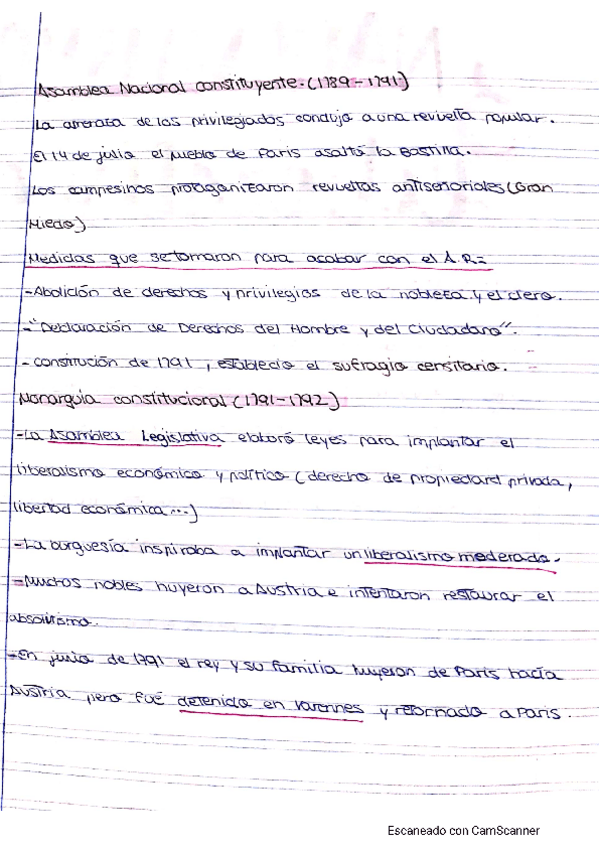 Asamblea Nacional constituyente. (1789-1791)
La amenaza de los privilegiados condujo a una revuelta popular.
El 14 de julio el pueblo de París asaltó la Bastilla.
Los campesinos protaganizaron revueltas antiseñoriales (Gran
Miedo)
Medidas que se tomaron para acabar con el A.R=
-Abolición de derechos y privilegios de la nobleza y el clero.
-"Declaración de Derechos del Hombre y del Ciudadano".
- constitución de 1791, establecio el sufragio censitario.
Monarquía constitucional (1791-1792)
-La Asamblea Legislativa elaboró leyes para implantar el
liberalismo económico y político (derecho de propiedad privada,
libertad económica...)
-La burguesía inspiraba a implantar un liberalismo moderado.
-Muchos nobles huyeron a Austria e intentaron restaurar el
absolutismo.
-En junio de 1791 el rey y su familia huyeron de París hacía
Austria, pero fué detenido en Varennes y retornado a París.
Escaneado con CamScanner